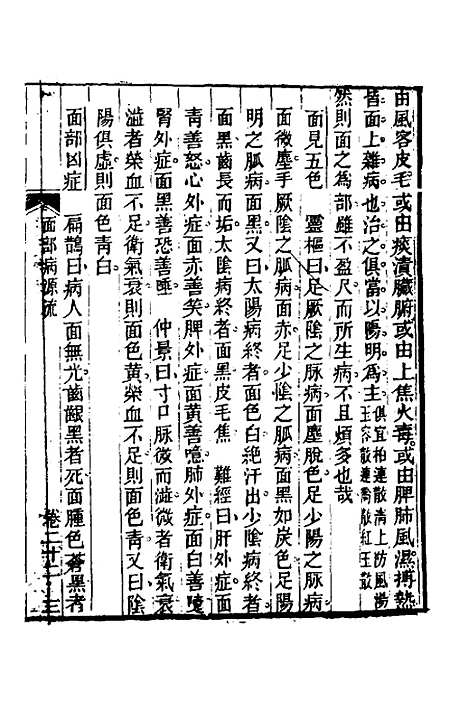 由風客皮毛或由痰漬臟腑或由上焦火毒或由脾肺風濕搏熱
皆面上雜病也治之俱當以陽明爲主俱宜柏連散清上防風湯王容散連翹散紅玉散
然則面之爲部雖不盈尺而所生病不且煩多也哉
面見五色　靈樞曰足厥陰之脈病面塵脫色足少陽之脈病
面微塵手厥陰之脈病面赤足少陰之脈病面黑如炭色足陽
明之脈病面黑又曰太陽病終者面色白絕汗出少陰病終者
面黑齒長而垢太陰病終者面黑皮毛焦　難經曰肝外症面
靑善怒心外症面赤善笑脾外症面黃善噫肺外症面白善嚏
腎外症面黑善恐善唾　仲景曰寸口脈微而澁微者衛氣衰
澁者榮血不足衛氣衰則面色黃榮血不足則面色靑又曰陰
陽俱虛則面色靑白
面部凶症　扁鵲曰病人面無光齒齦黑者死面腫色蒼黑者
面部病源流
卷二十七　三